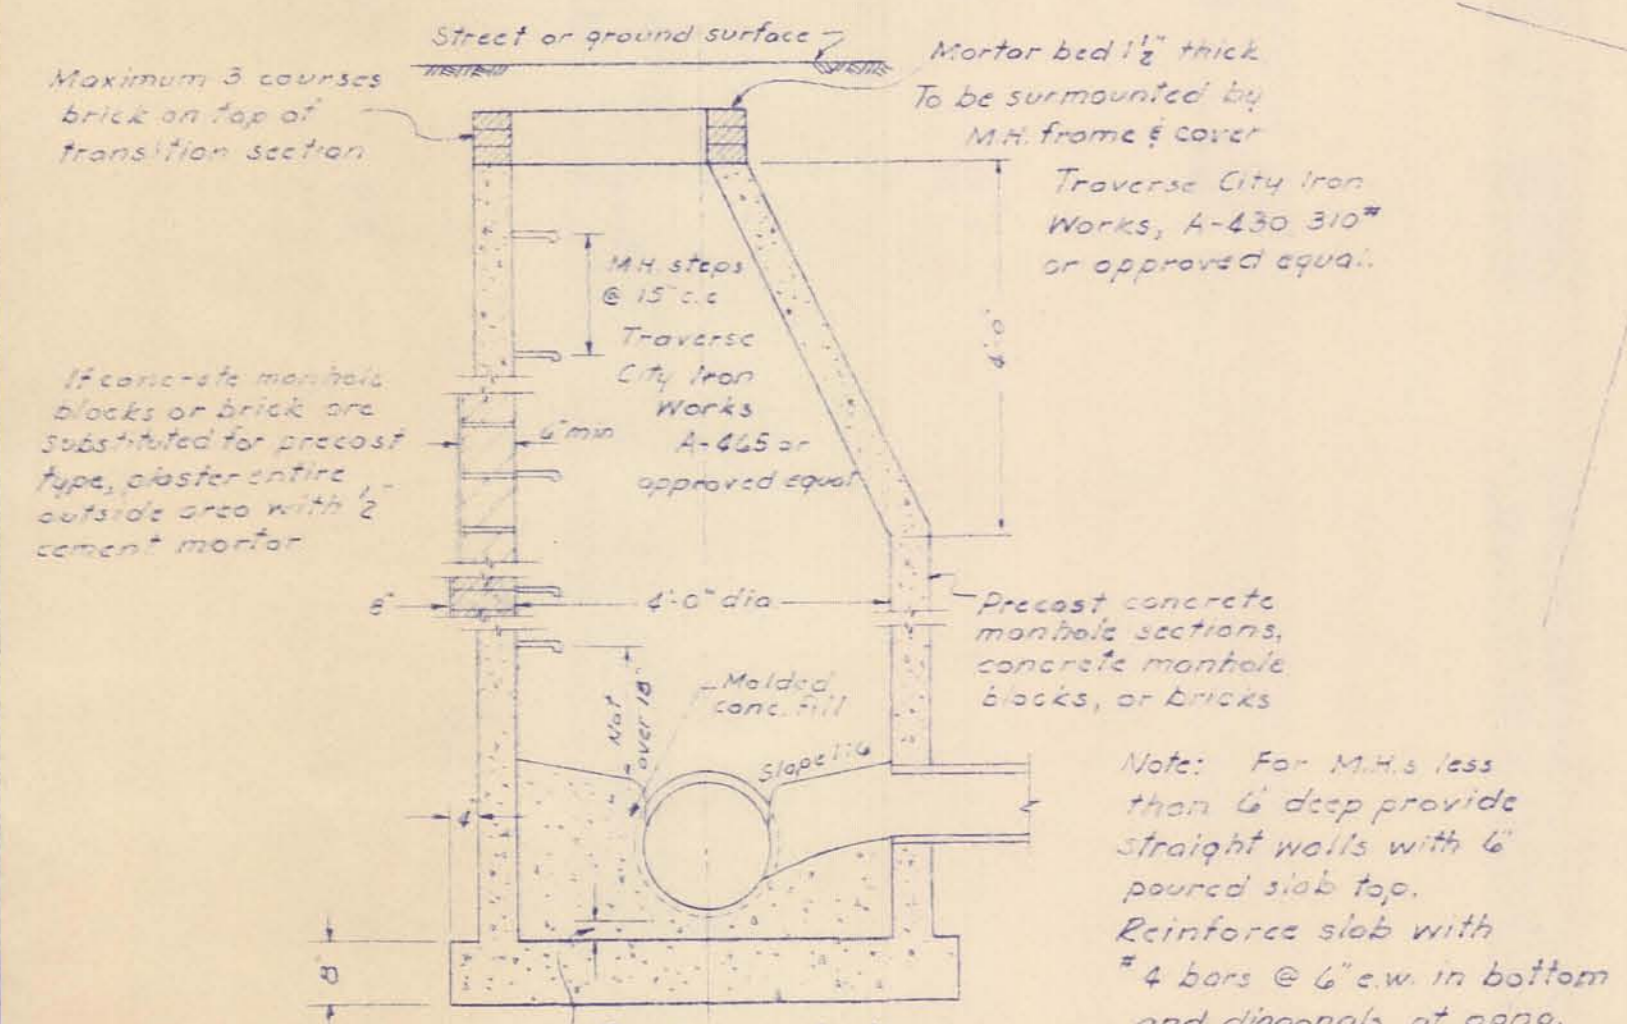 Street or ground surface
Maximum 3 courses
brick on top of
transition section
Mortar bed 1½" thick
To be surmounted by
M.H. frame & cover
Traverse City Iron
Works, A-430 310#
or approved equal.
M.H. steps
@ 15" c.c
Traverse
City Iron
Works
A-465 or
approved equal
4'-0"
If concrete manhole
blocks or brick are
substituted for precast
type, plaster entire
outside area with ½"
cement mortar
6" min
8"
4'-0" dia
Precast concrete
manhole sections,
concrete manhole
blocks, or bricks
Not
over 18"
Molded
conc. fill
Slope 1:6
4"
8"
Note: For M.H.s less
than 6' deep provide
straight walls with 6"
poured slab top.
Reinforce slab with
#4 bars @ 6" e.w. in bottom
and diagonals at opng.